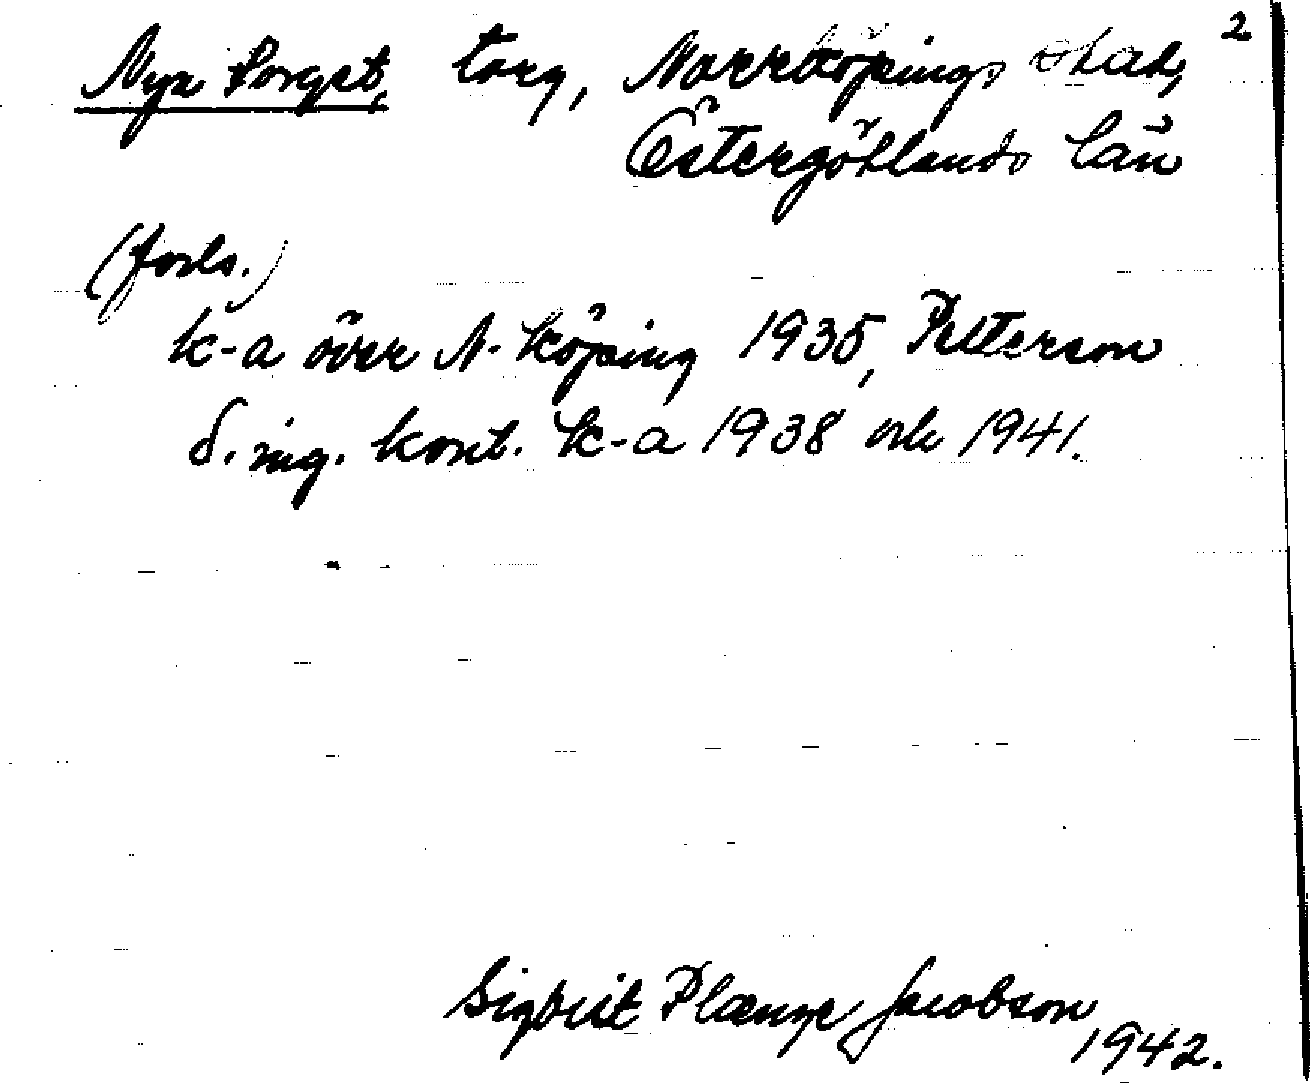 2
Nya Torget, torg, Norrköpings stad,
Östergötlands län
(forts.)
k-a över N-köping 1935, Petterson
S. ing. kont. k-a 1938 och 1941.
Sigbrit Plænge Jacobson
1942.